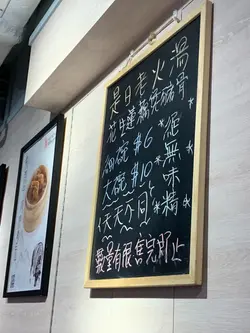 是日老火湯
花生蓮藕煲豬骨
細碗 $6
大碗 $10
*絕無味精*
*天天不同*
數量有限售完即止